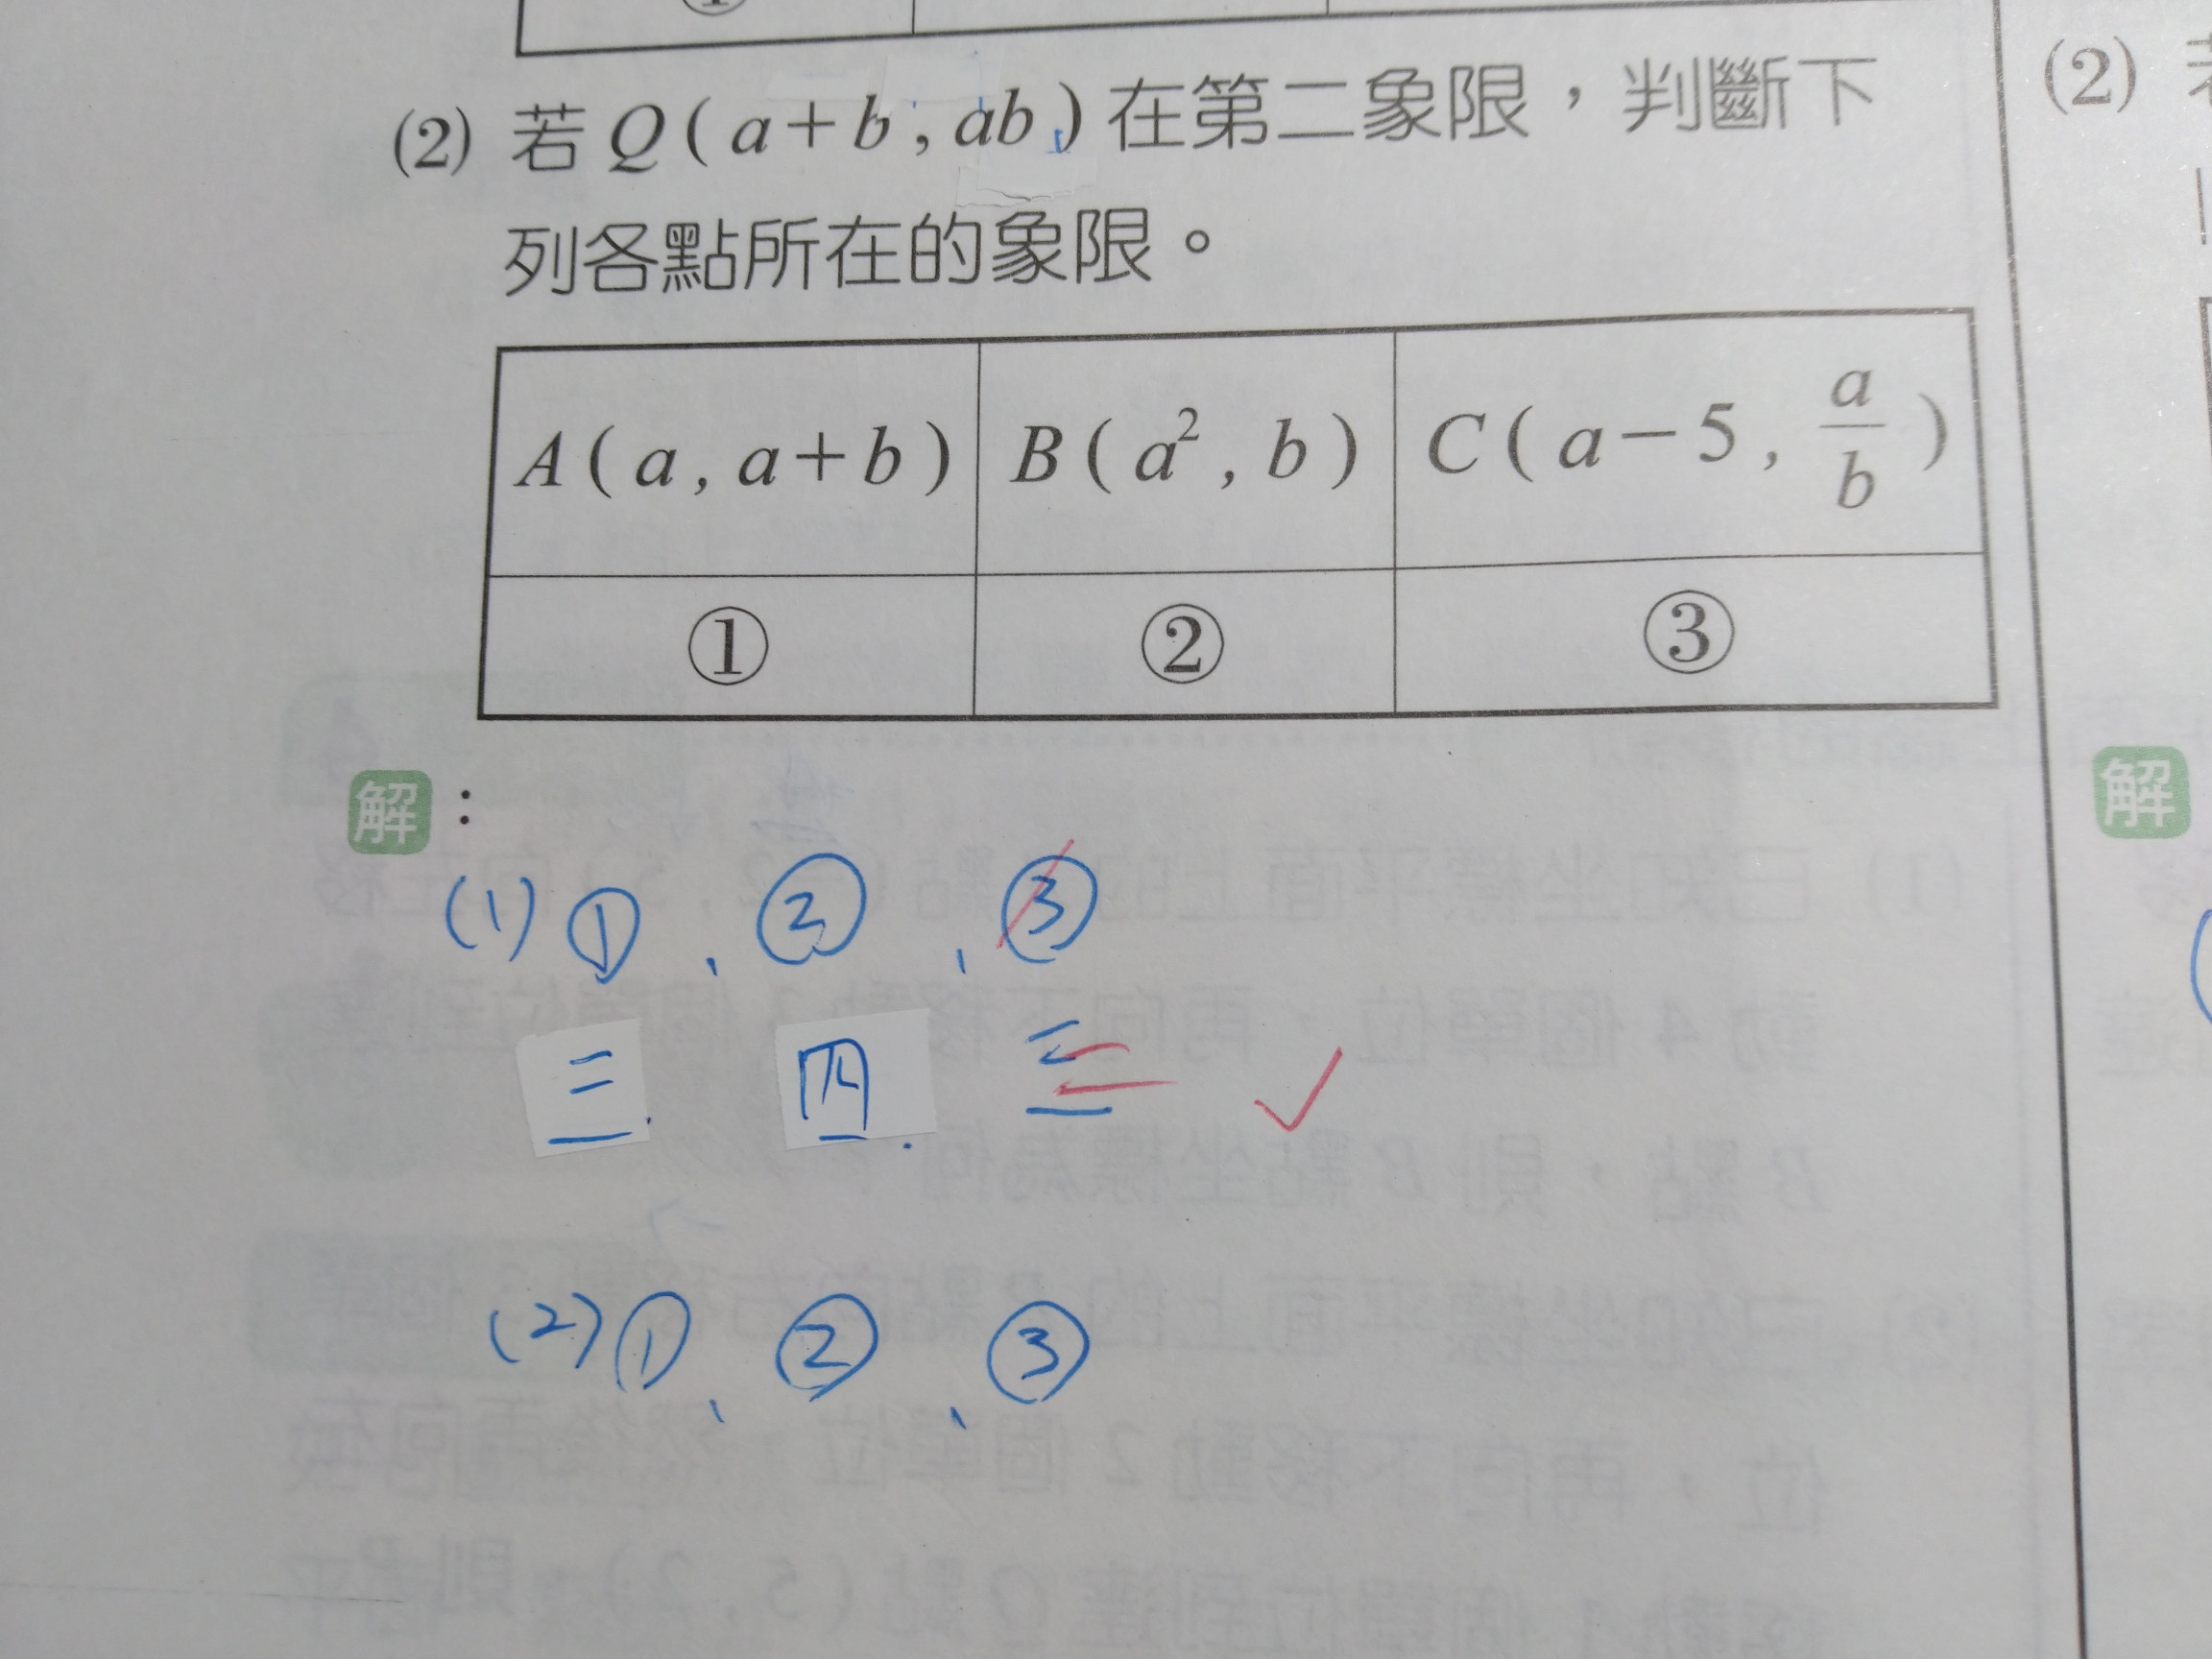 (2) 若 Q ( a + b , ab ) 在第二象限，判斷下
列各點所在的象限。
A ( a , a + b ) B ( a² , b ) C ( a - 5 , a/b )
① ② ③
解：
(1) ① 、 ② 、 ③
三 四
(2) ① 、 ② 、 ③
(2)
解